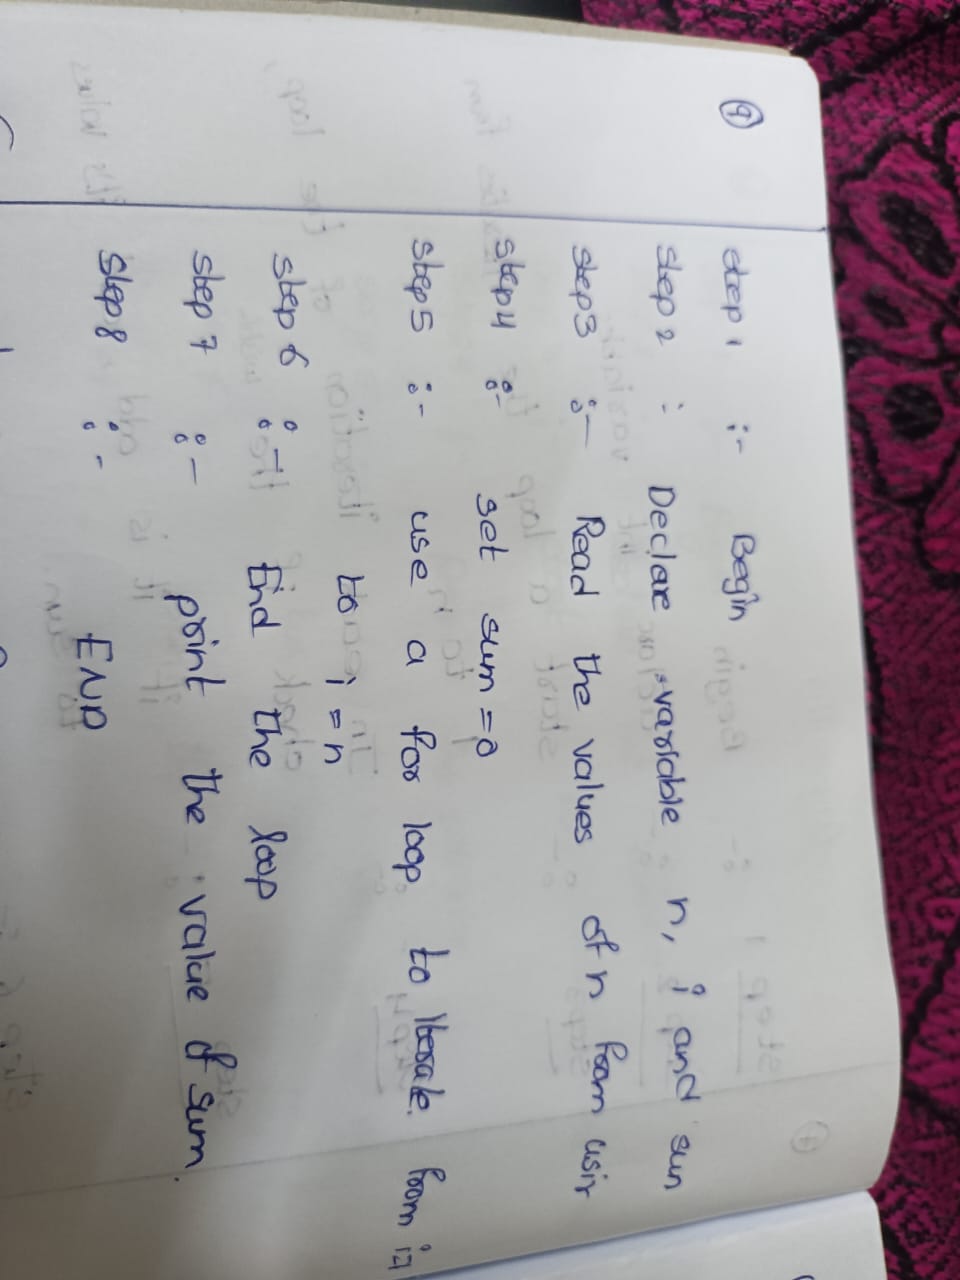 9
step 1 :- Begin
step 2 : Declare variable n, i and sun
step3 :- Read the values of n from usir
step4 :- set sum = 0
step5 :- use a for loop to Iterate. from i=
to i = n
step 6 :- End the loop
step 7 :- print the value of sum.
step 8 :- END